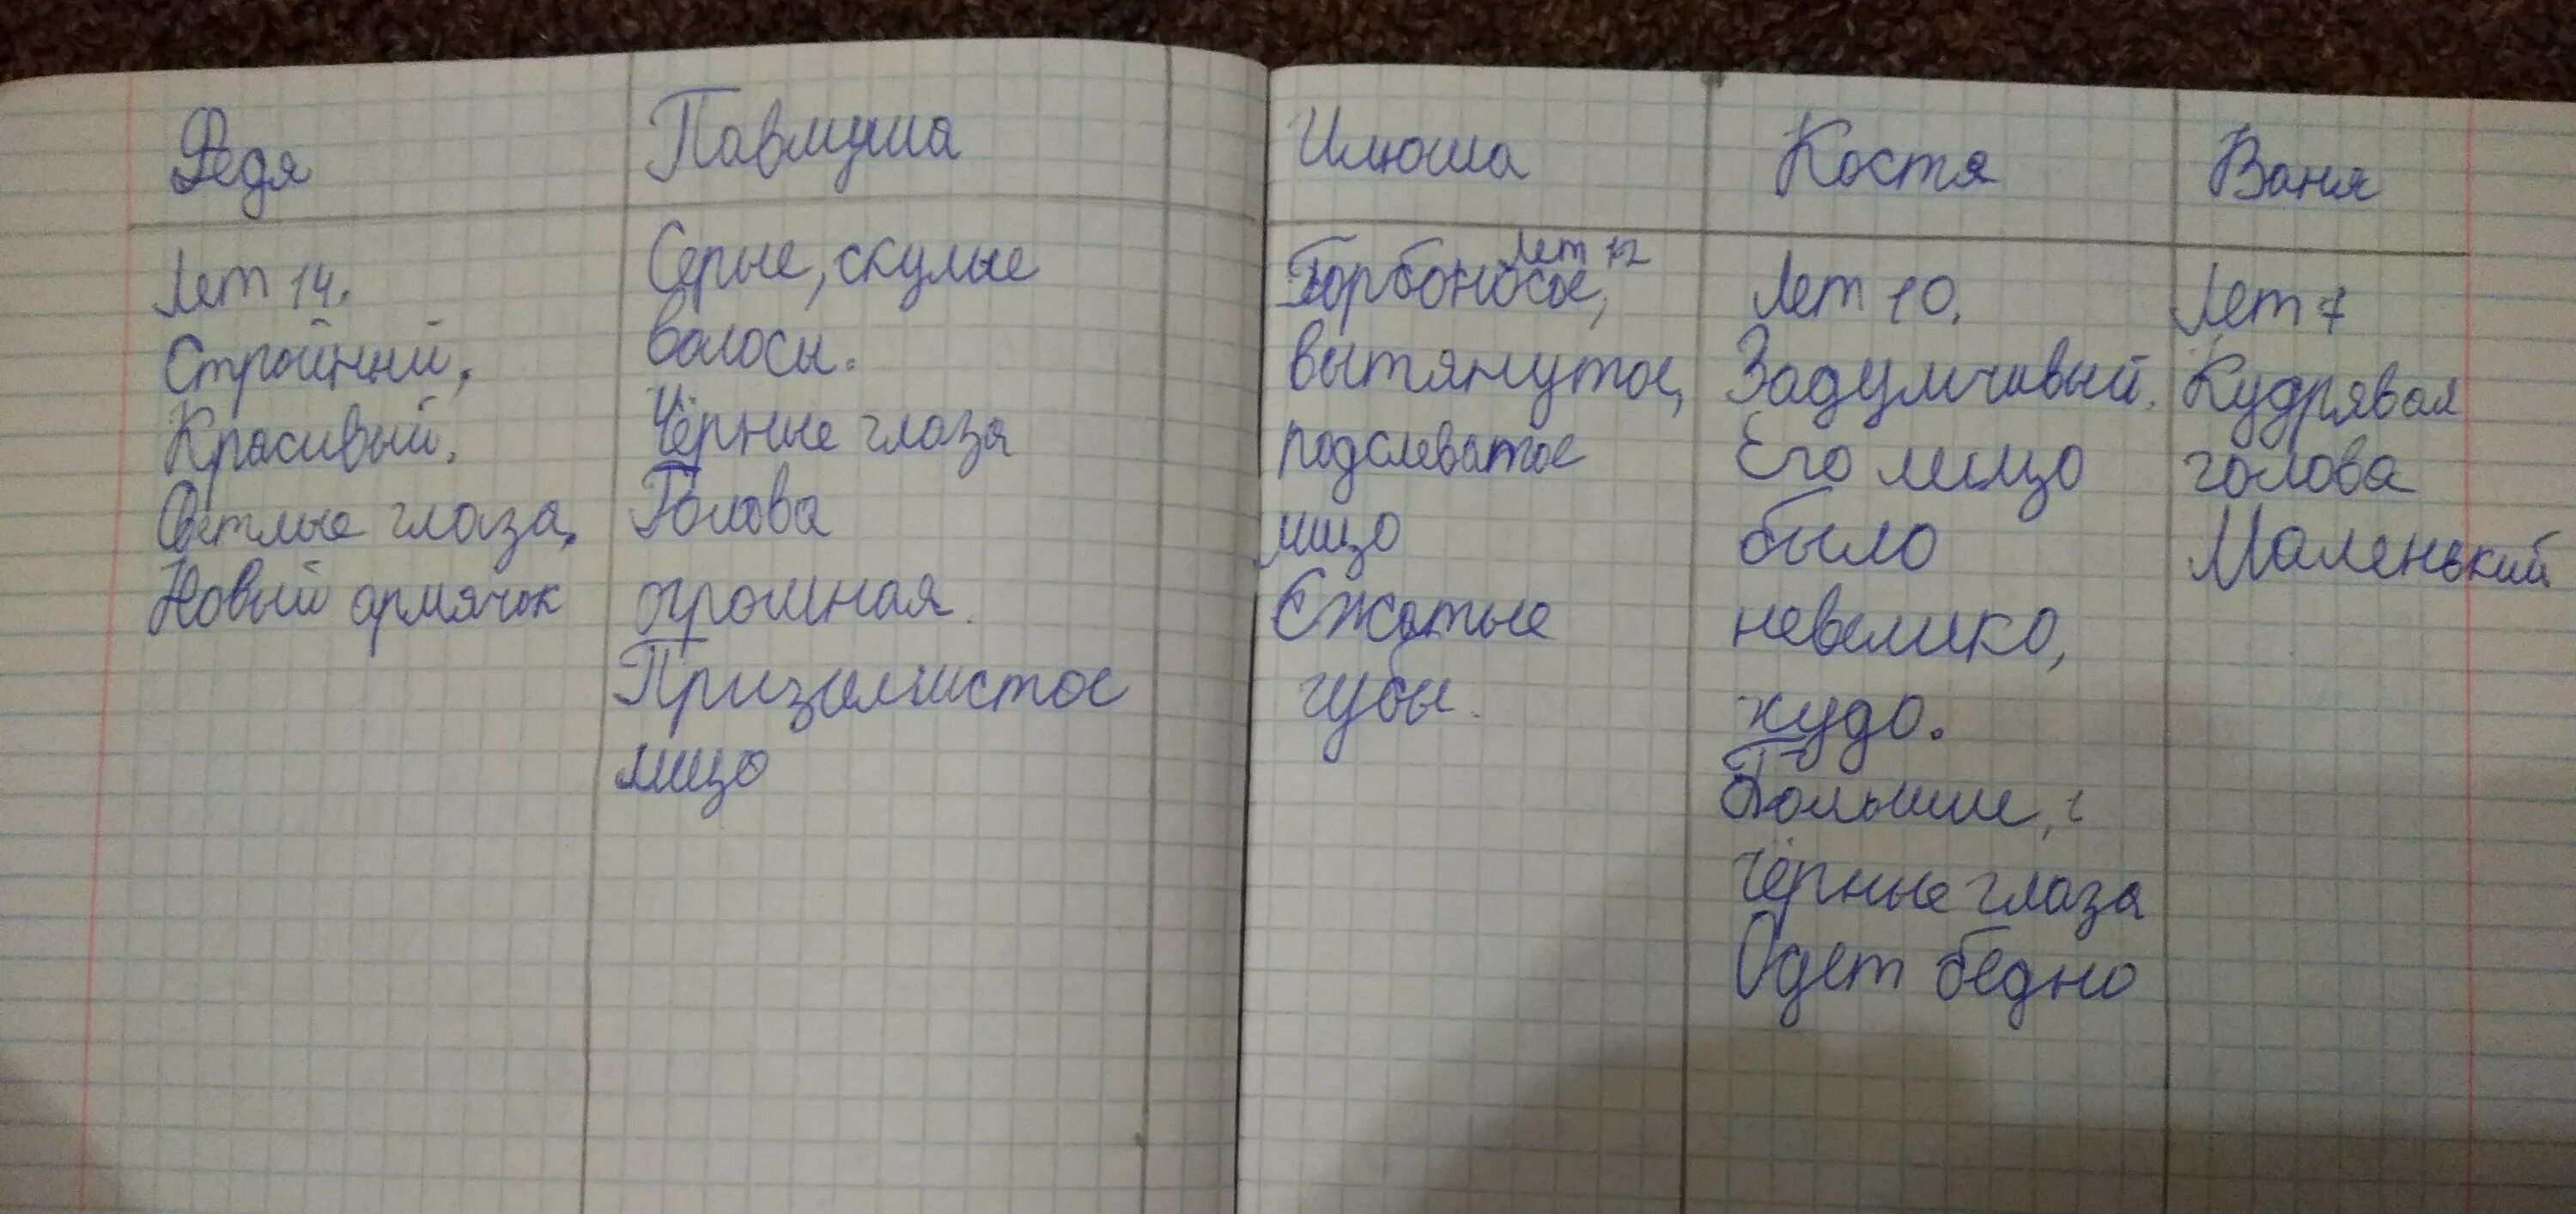 Федя
Лет 14.
Стройний.
Красивый.
Светлые глаза.
Новый армячок
Павлуша
Серые, скулые
волосы.
Чёрные глаза
Голова
огромная.
Призимистое
лицо
Илюша
Лет 12
Горбоносое,
вытянутое,
подслеватое
лицо
Сжатые
губы.
Костя
Лет 10.
Задумчивый.
Его лицо
было
невелико,
худо.
Большие,
чёрные глаза
Одет бедно
Ваня
Лет 7
Кудрявая
голова
Маленький